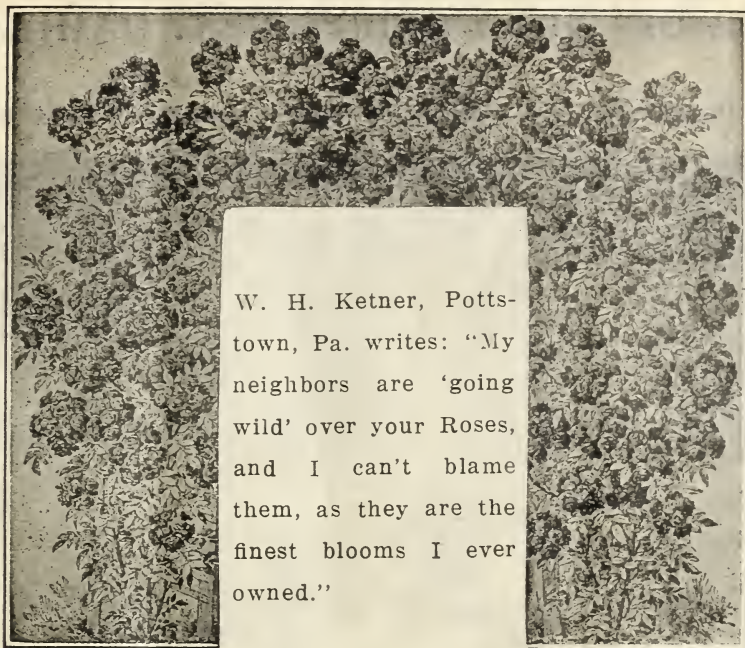 W. H. Ketner, Potts-
town, Pa. writes: “My
neighbors are ‘going
wild’ over your Roses,
and I can't blame
them, as they are the
finest blooms I ever
owned.”